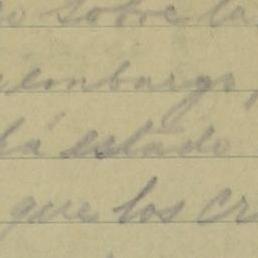 o sobre la
embargo,
há estado
que los cr